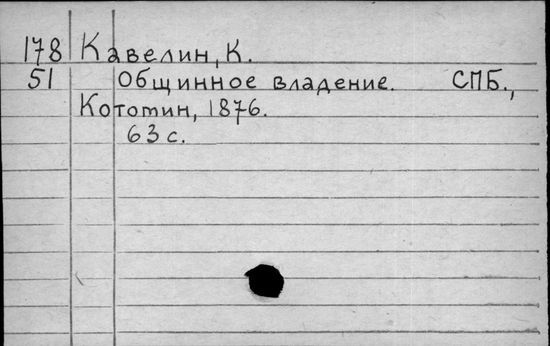 178 Кавелин, К.
51 Общинное владение. СПБ.,
Котомин, 1876.
63 с.